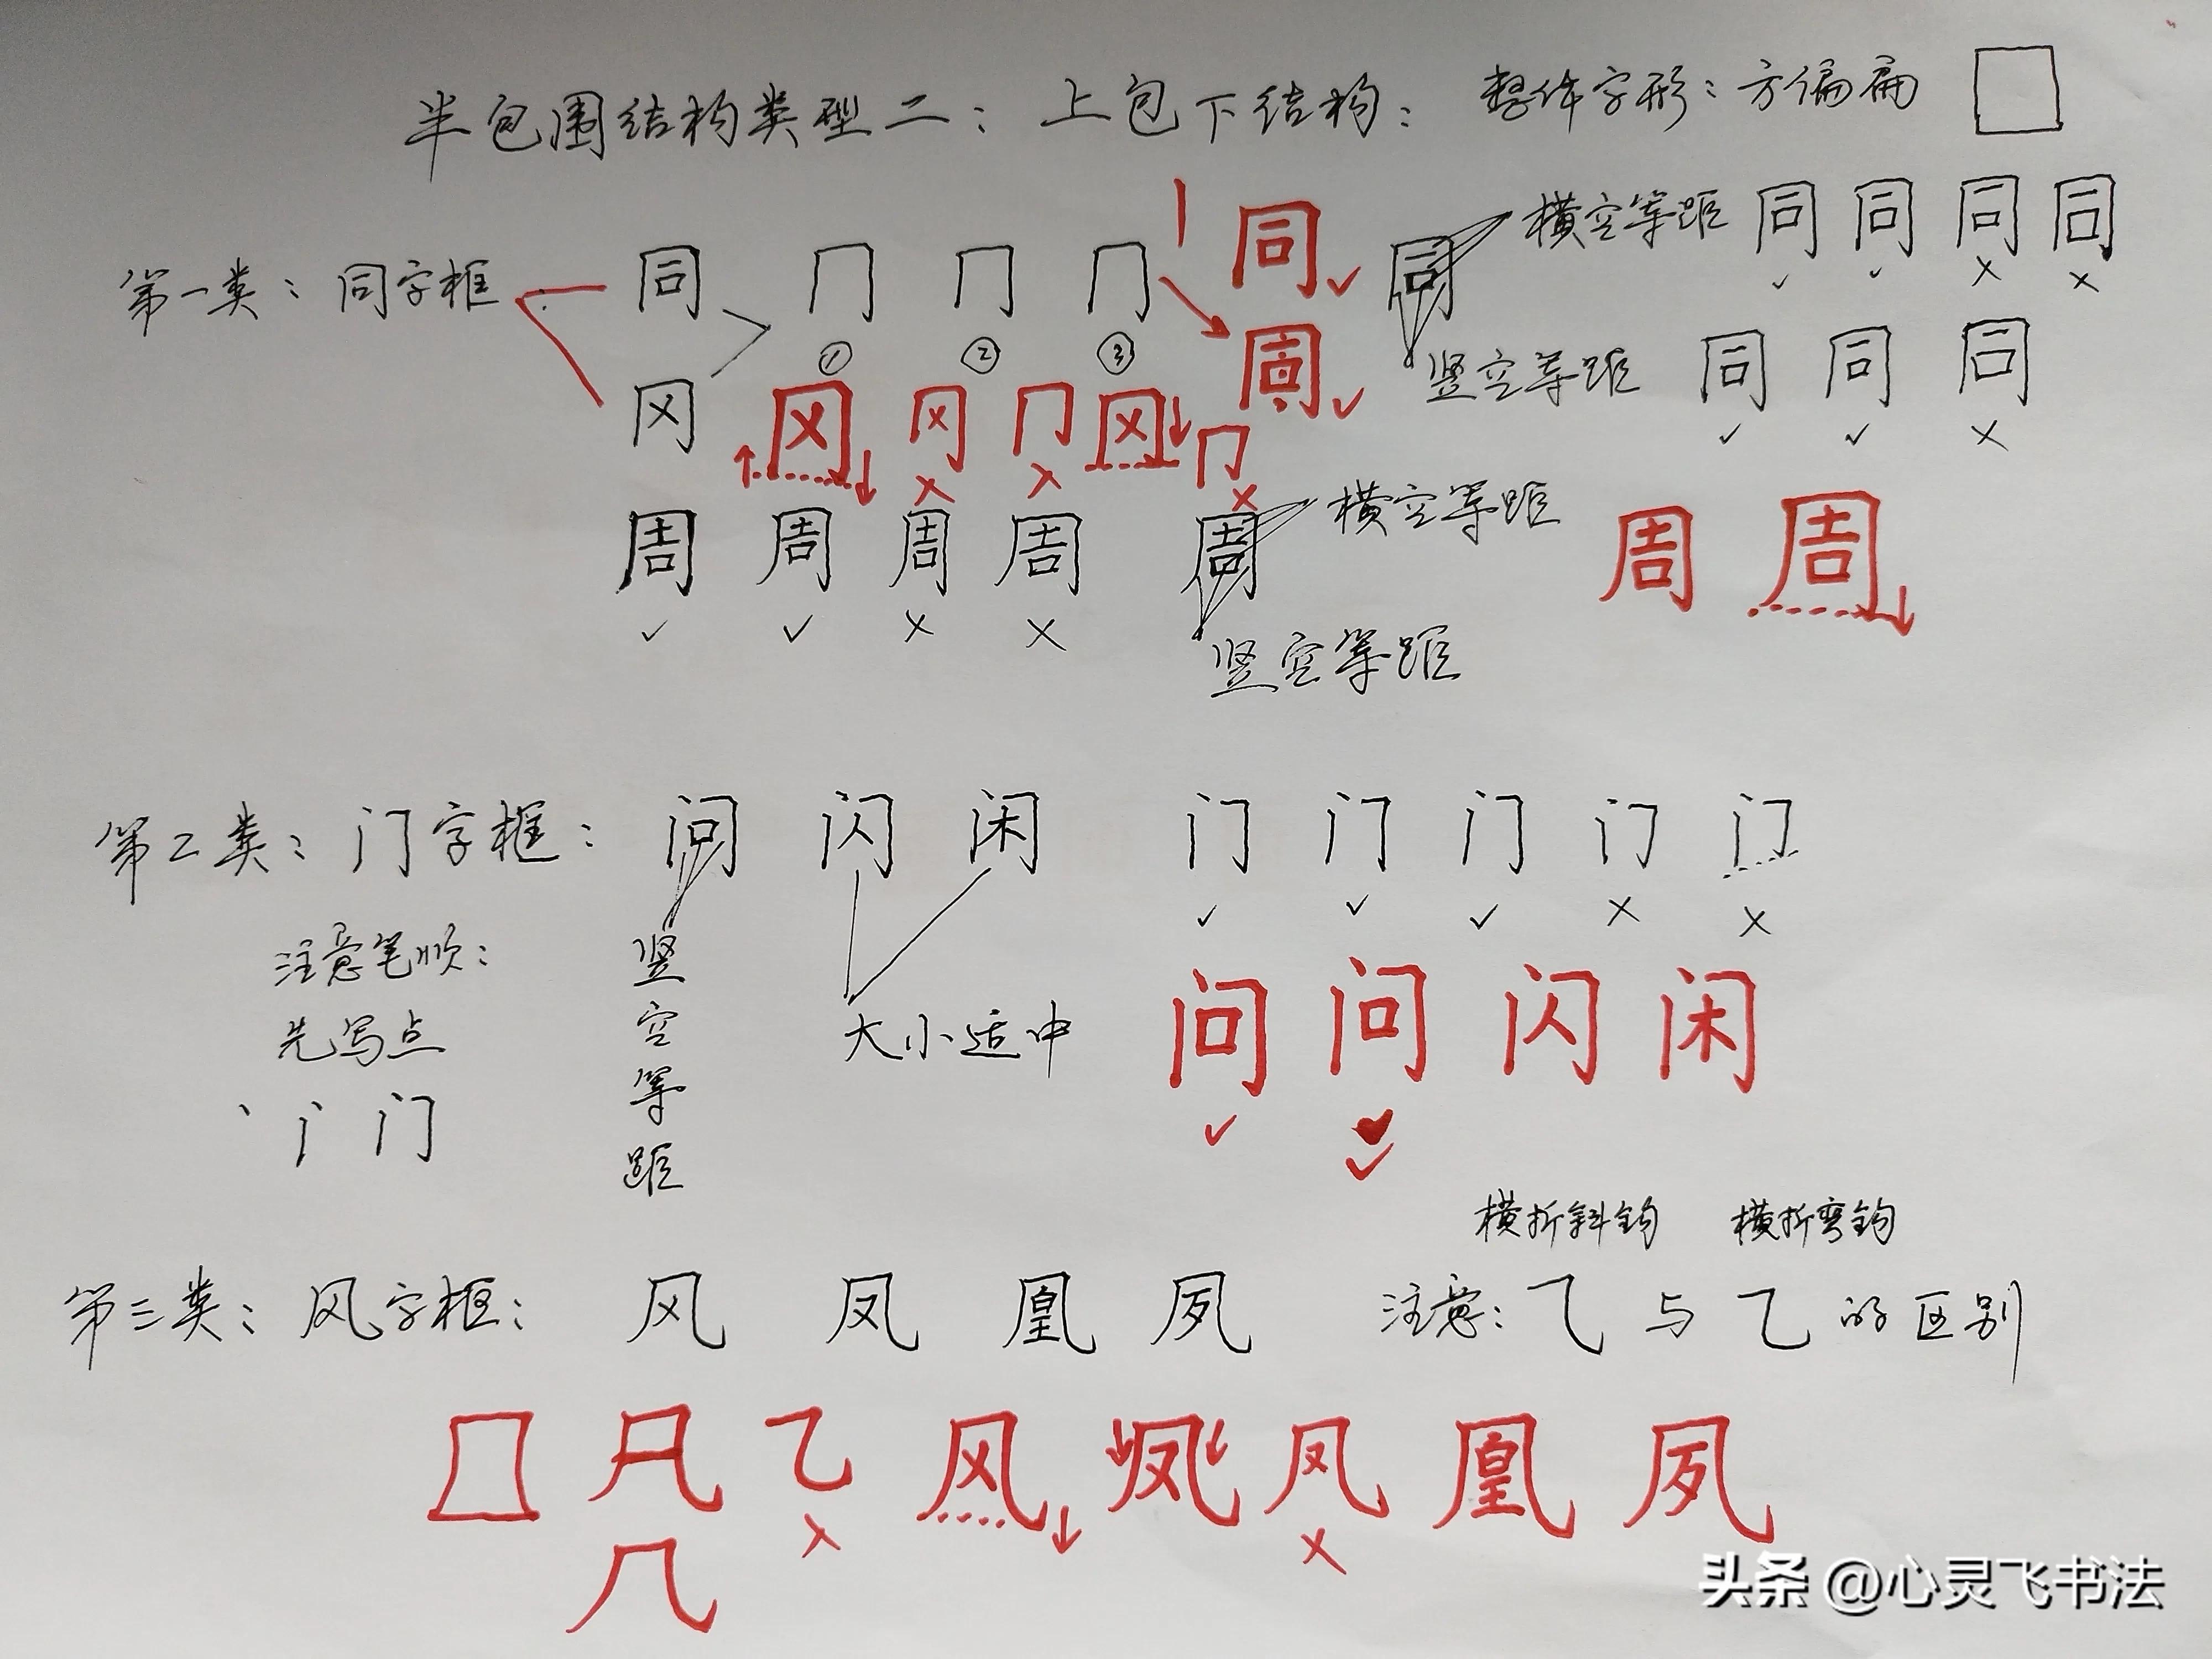 半包围结构类型二：上包下结构： 整体字形：方偏扁
同 横空等距 同 同 同 同
第一类：同字框： 同 冂 冂 冂 同
① ② ③ 周 竖空等距 同 同 同
冈 冈 冈 冂 冈 冂
周 周 周 周 周 横空等距 周 周
竖空等距
第二类：门字框： 问 闪 闲 门 门 门 门 门
注意笔顺： 竖空等距 问 问 闪 闲
先写点 大小适中
丶 门
横折斜钩 横折弯钩
第三类：风字框： 风 凤 凰 夙 注意：⺄与乙的区别
风 凤 凤 凰 夙
几
头条 @心灵飞书法